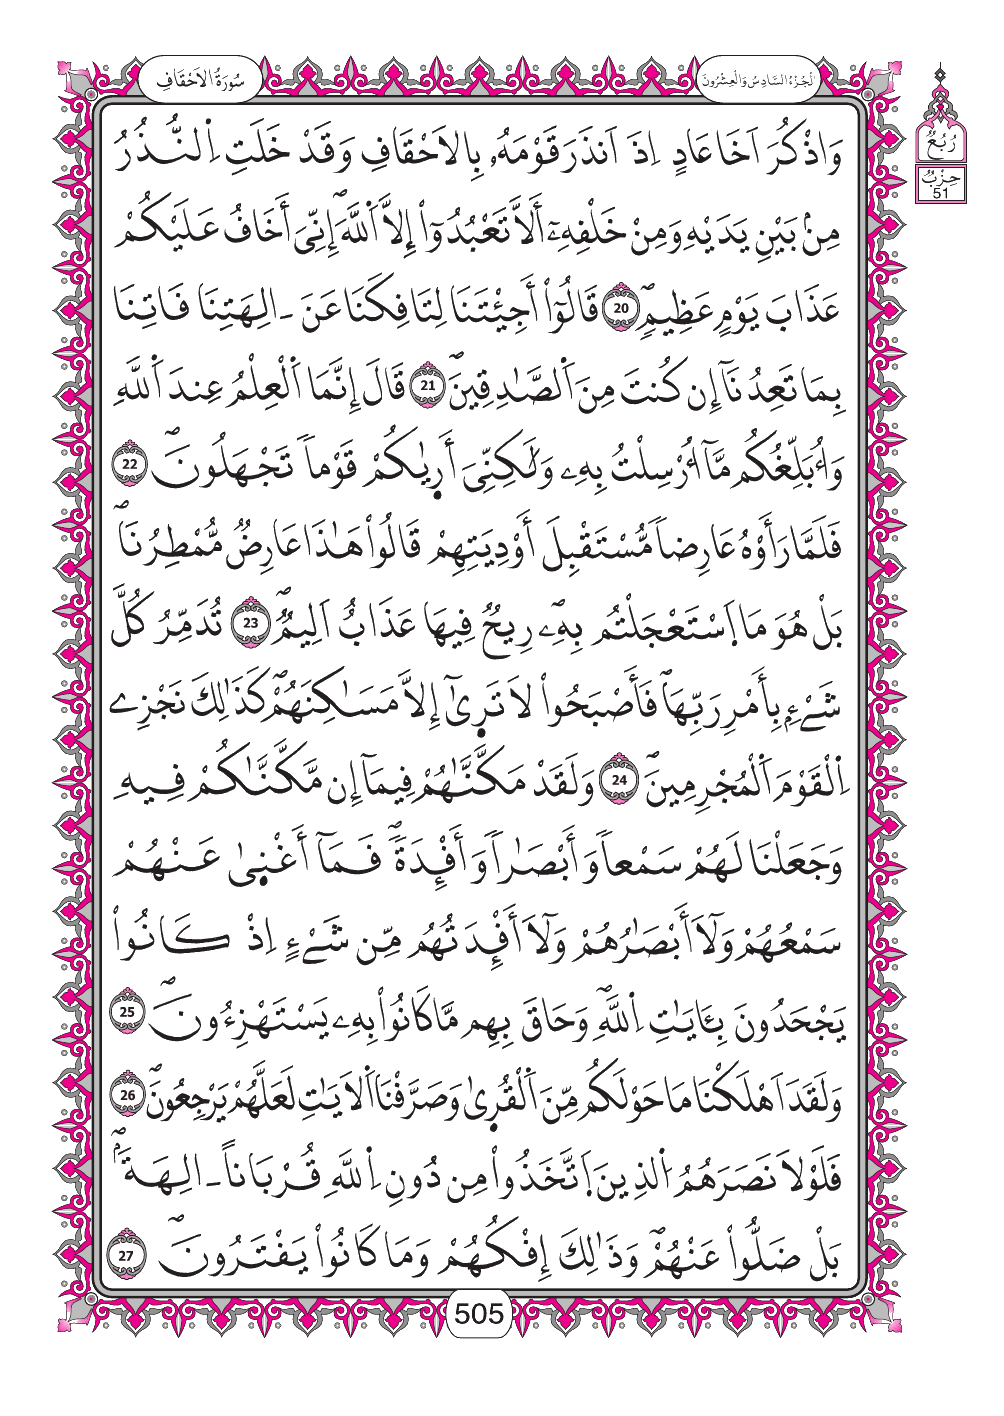 سُورَةُ الاَحْقَافِ
الْجُزْءُ السَّادِسُ وَالْعِشْرُونَ
رُبُعُ
حِزْبٌ
51
وَاذْكُرَ اَخَا عَادٍ اِذَ اَنذَرَ قَوْمَهُۥ بِالاَحْقَافِ وَقَدْ خَلَتِ اِ۬لنُّذُرُ
مِنۢ بَيْنِ يَدَيْهِ وَمِنْ خَلْفِهِۦٓ أَلَّا تَعْبُدُوٓاْ إِلاَّ اَ۬للَّهَ إِنِّيَ أَخَافُ عَلَيْكُمْ
عَذَابَ يَوْمٍ عَظِيمٍ 20 قَالُوٓاْ أَجِئْتَنَا لِتَافِكَنَا عَنَ ـ اٰلِهَتِنَا فَاتِنَا
بِمَا تَعِدُنَآ إِن كُنتَ مِنَ اَ۬لصَّٰدِقِينَ 21 قَالَ إِنَّمَا اَ۬لْعِلْمُ عِندَ اَ۬للَّهِ
وَأُبَلِّغُكُم مَّآ أُرْسِلْتُ بِهِۦ وَلَٰكِنِّيَ أَر۪يٰكُمْ قَوْماً تَجْهَلُونَ 22
فَلَمَّا رَأَوْهُ عَارِضاً مُّسْتَقْبِلَ أَوْدِيَتِهِمْ قَالُواْ هَٰذَا عَارِضٌ مُّمْطِرُنَا
بَلْ هُوَ مَا اَ۪سْتَعْجَلْتُم بِهِۦ رِيحٌ فِيهَا عَذَابٌ اَلِيمٌ 23 تُدَمِّرُ كُلَّ
شَےْءِۢ بِأَمْرِ رَبِّهَا فَأَصْبَحُواْ لاَ تَر۪يٰٓ إِلاَّ مَسَٰكِنَهُمْ كَذَٰلِكَ نَجْزِے
اِ۬لْقَوْمَ اَ۬لْمُجْرِمِينَ 24 وَلَقَدْ مَكَّنَّٰهُمْ فِيمَآ إِن مَّكَّنَّٰكُمْ فِيهِ
وَجَعَلْنَا لَهُمْ سَمْعاً وَأَبْصَٰراً وَأَفْـِٕدَةً فَمَآ أَغْن۪يٰ عَنْهُمْ
سَمْعُهُمْ وَلَآ أَبْصَٰرُهُمْ وَلَآ أَفْـِٕدَتُهُم مِّن شَےْءٍ اِذْ كَانُواْ
يَجْحَدُونَ بِـَٔايَٰتِ اِ۬للَّهِ وَحَاقَ بِهِم مَّا كَانُواْ بِهِۦ يَسْتَهْزِءُونَ 25
وَلَقَدَ اَهْلَكْنَا مَا حَوْلَكُم مِّنَ اَ۬لْقُر۪يٰ وَصَرَّفْنَا اَ۬لاَيَٰتِ لَعَلَّهُمْ يَرْجِعُونَ 26
فَلَوْلاَ نَصَرَهُمُ اُ۬لذِينَ اَ۪تَّخَذُواْ مِن دُونِ اِ۬للَّهِ قُرْبَاناً ـ اٰلِهَةَۢ
بَلْ ضَلُّواْ عَنْهُمْ وَذَٰلِكَ إِفْكُهُمْ وَمَا كَانُواْ يَفْتَرُونَ 27
505